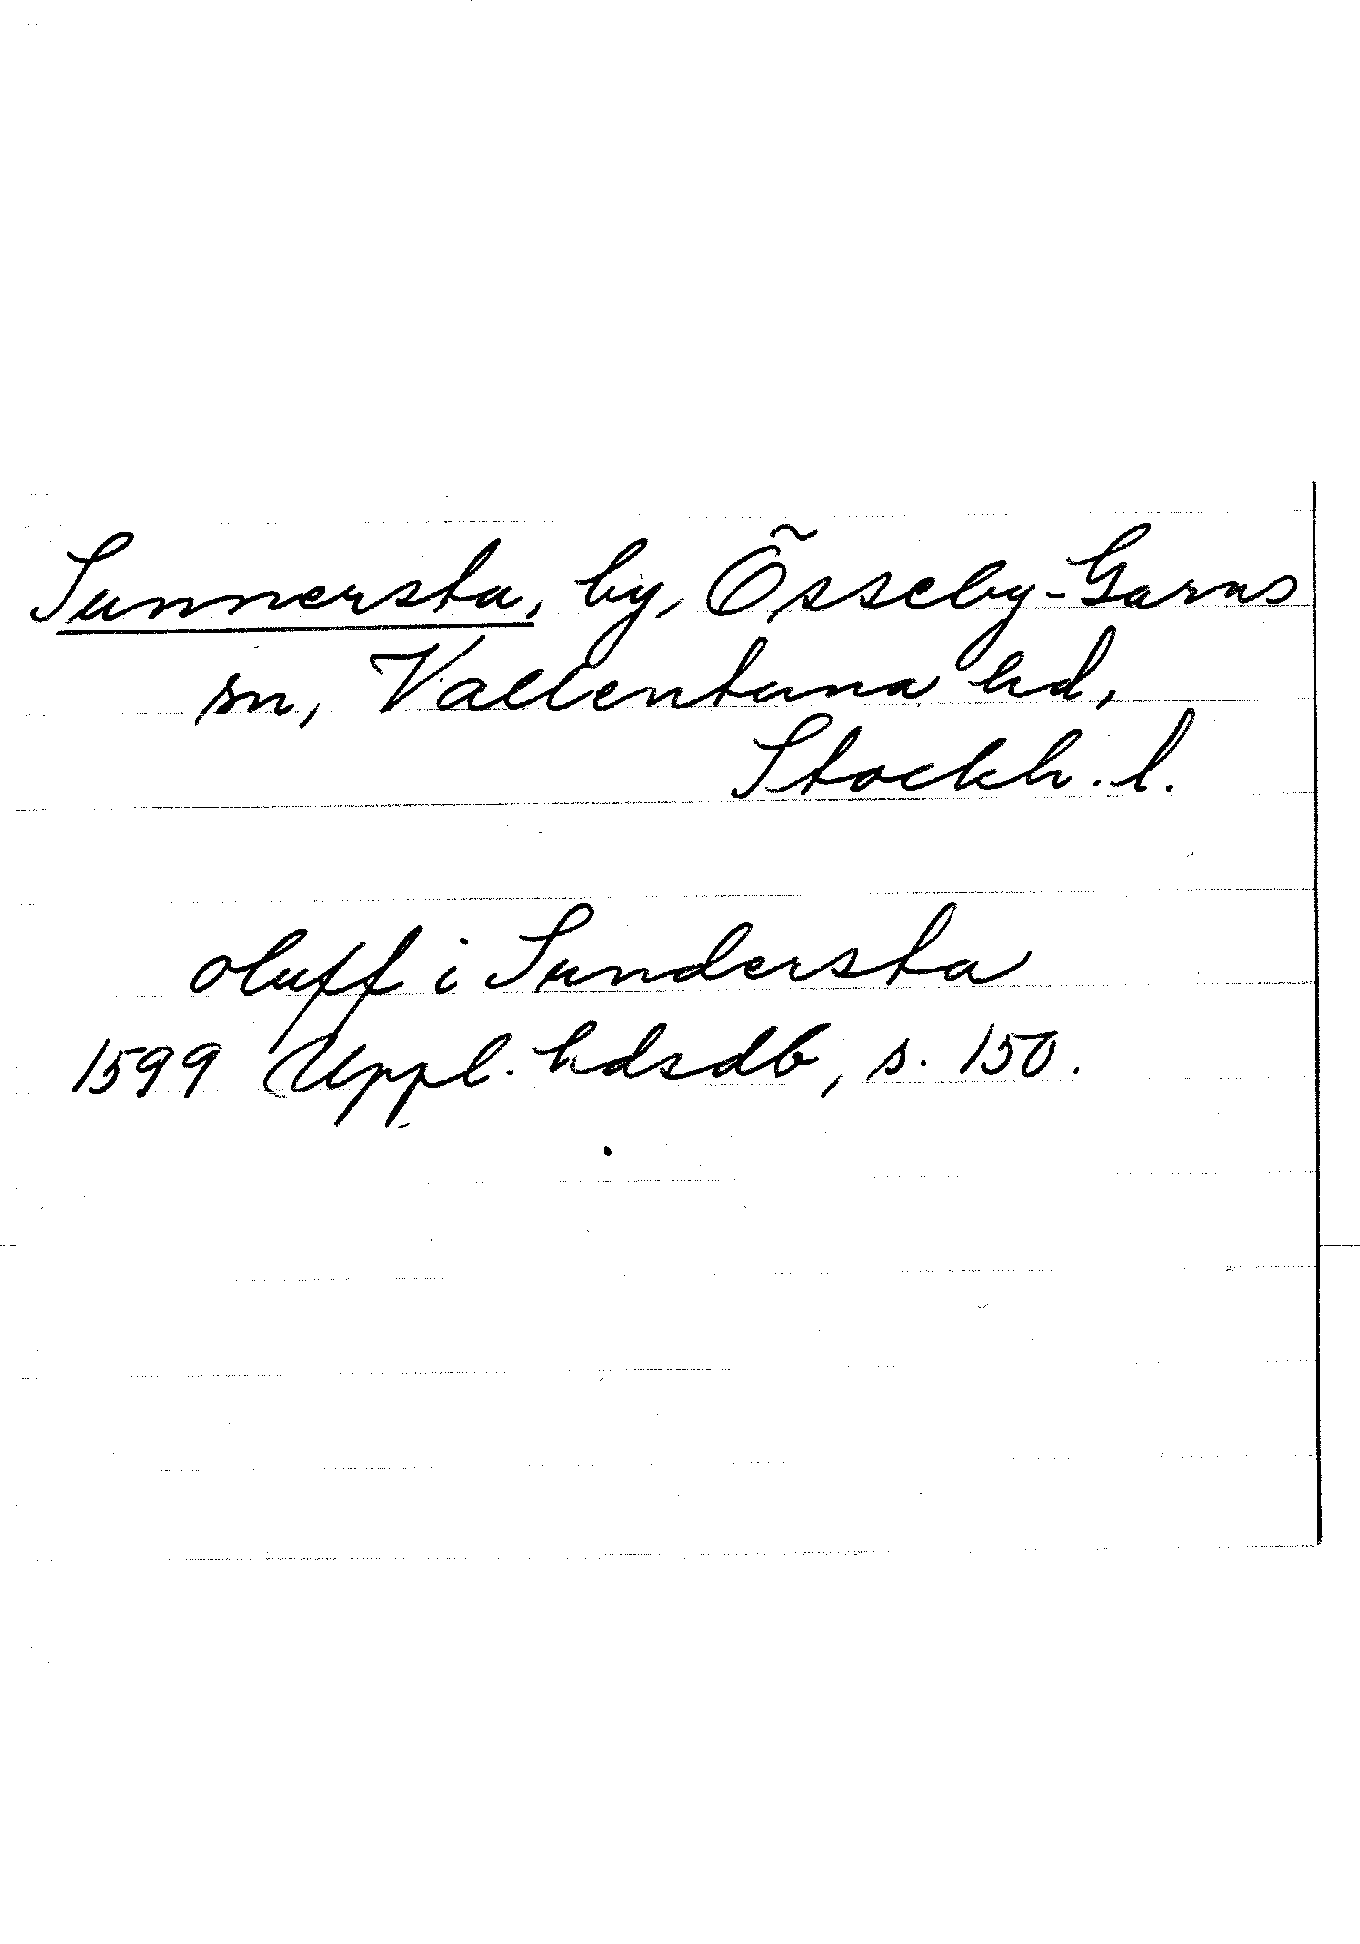 Sunnersta, by, Össeby-Garns
sn, Vallentuna hd,
Stockh. l.
oluff i Sundersta
1599 Uppl. hdsdb, s. 150.